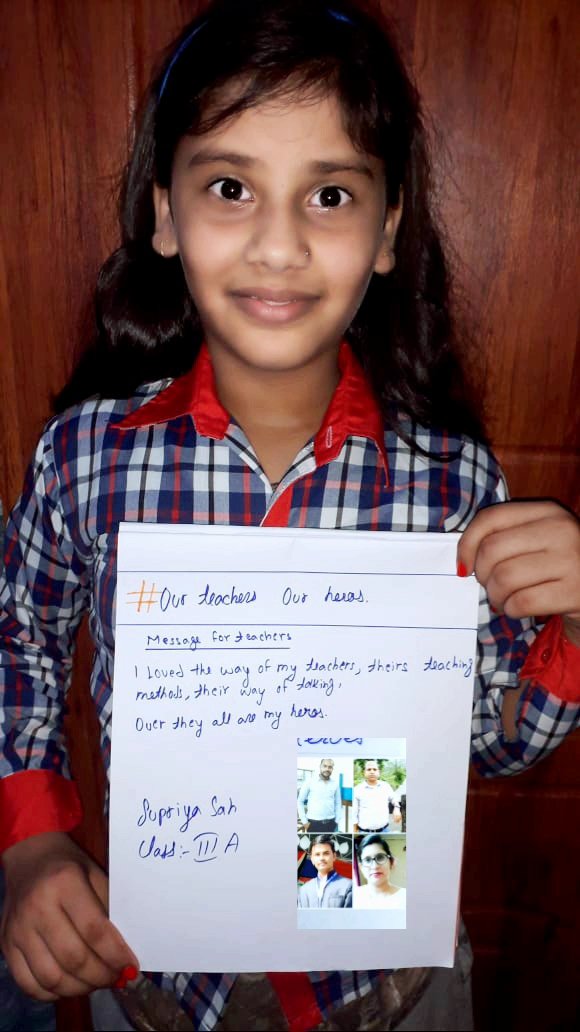 #Our teachers Our heros.
Message for teachers
I Loved the way of my teachers, theirs teaching
methods, their way of talking,
Over they all are my heros.
Supriya Sah
Class:- III A